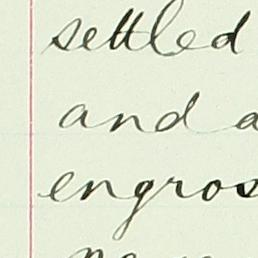 settled
and a
engros